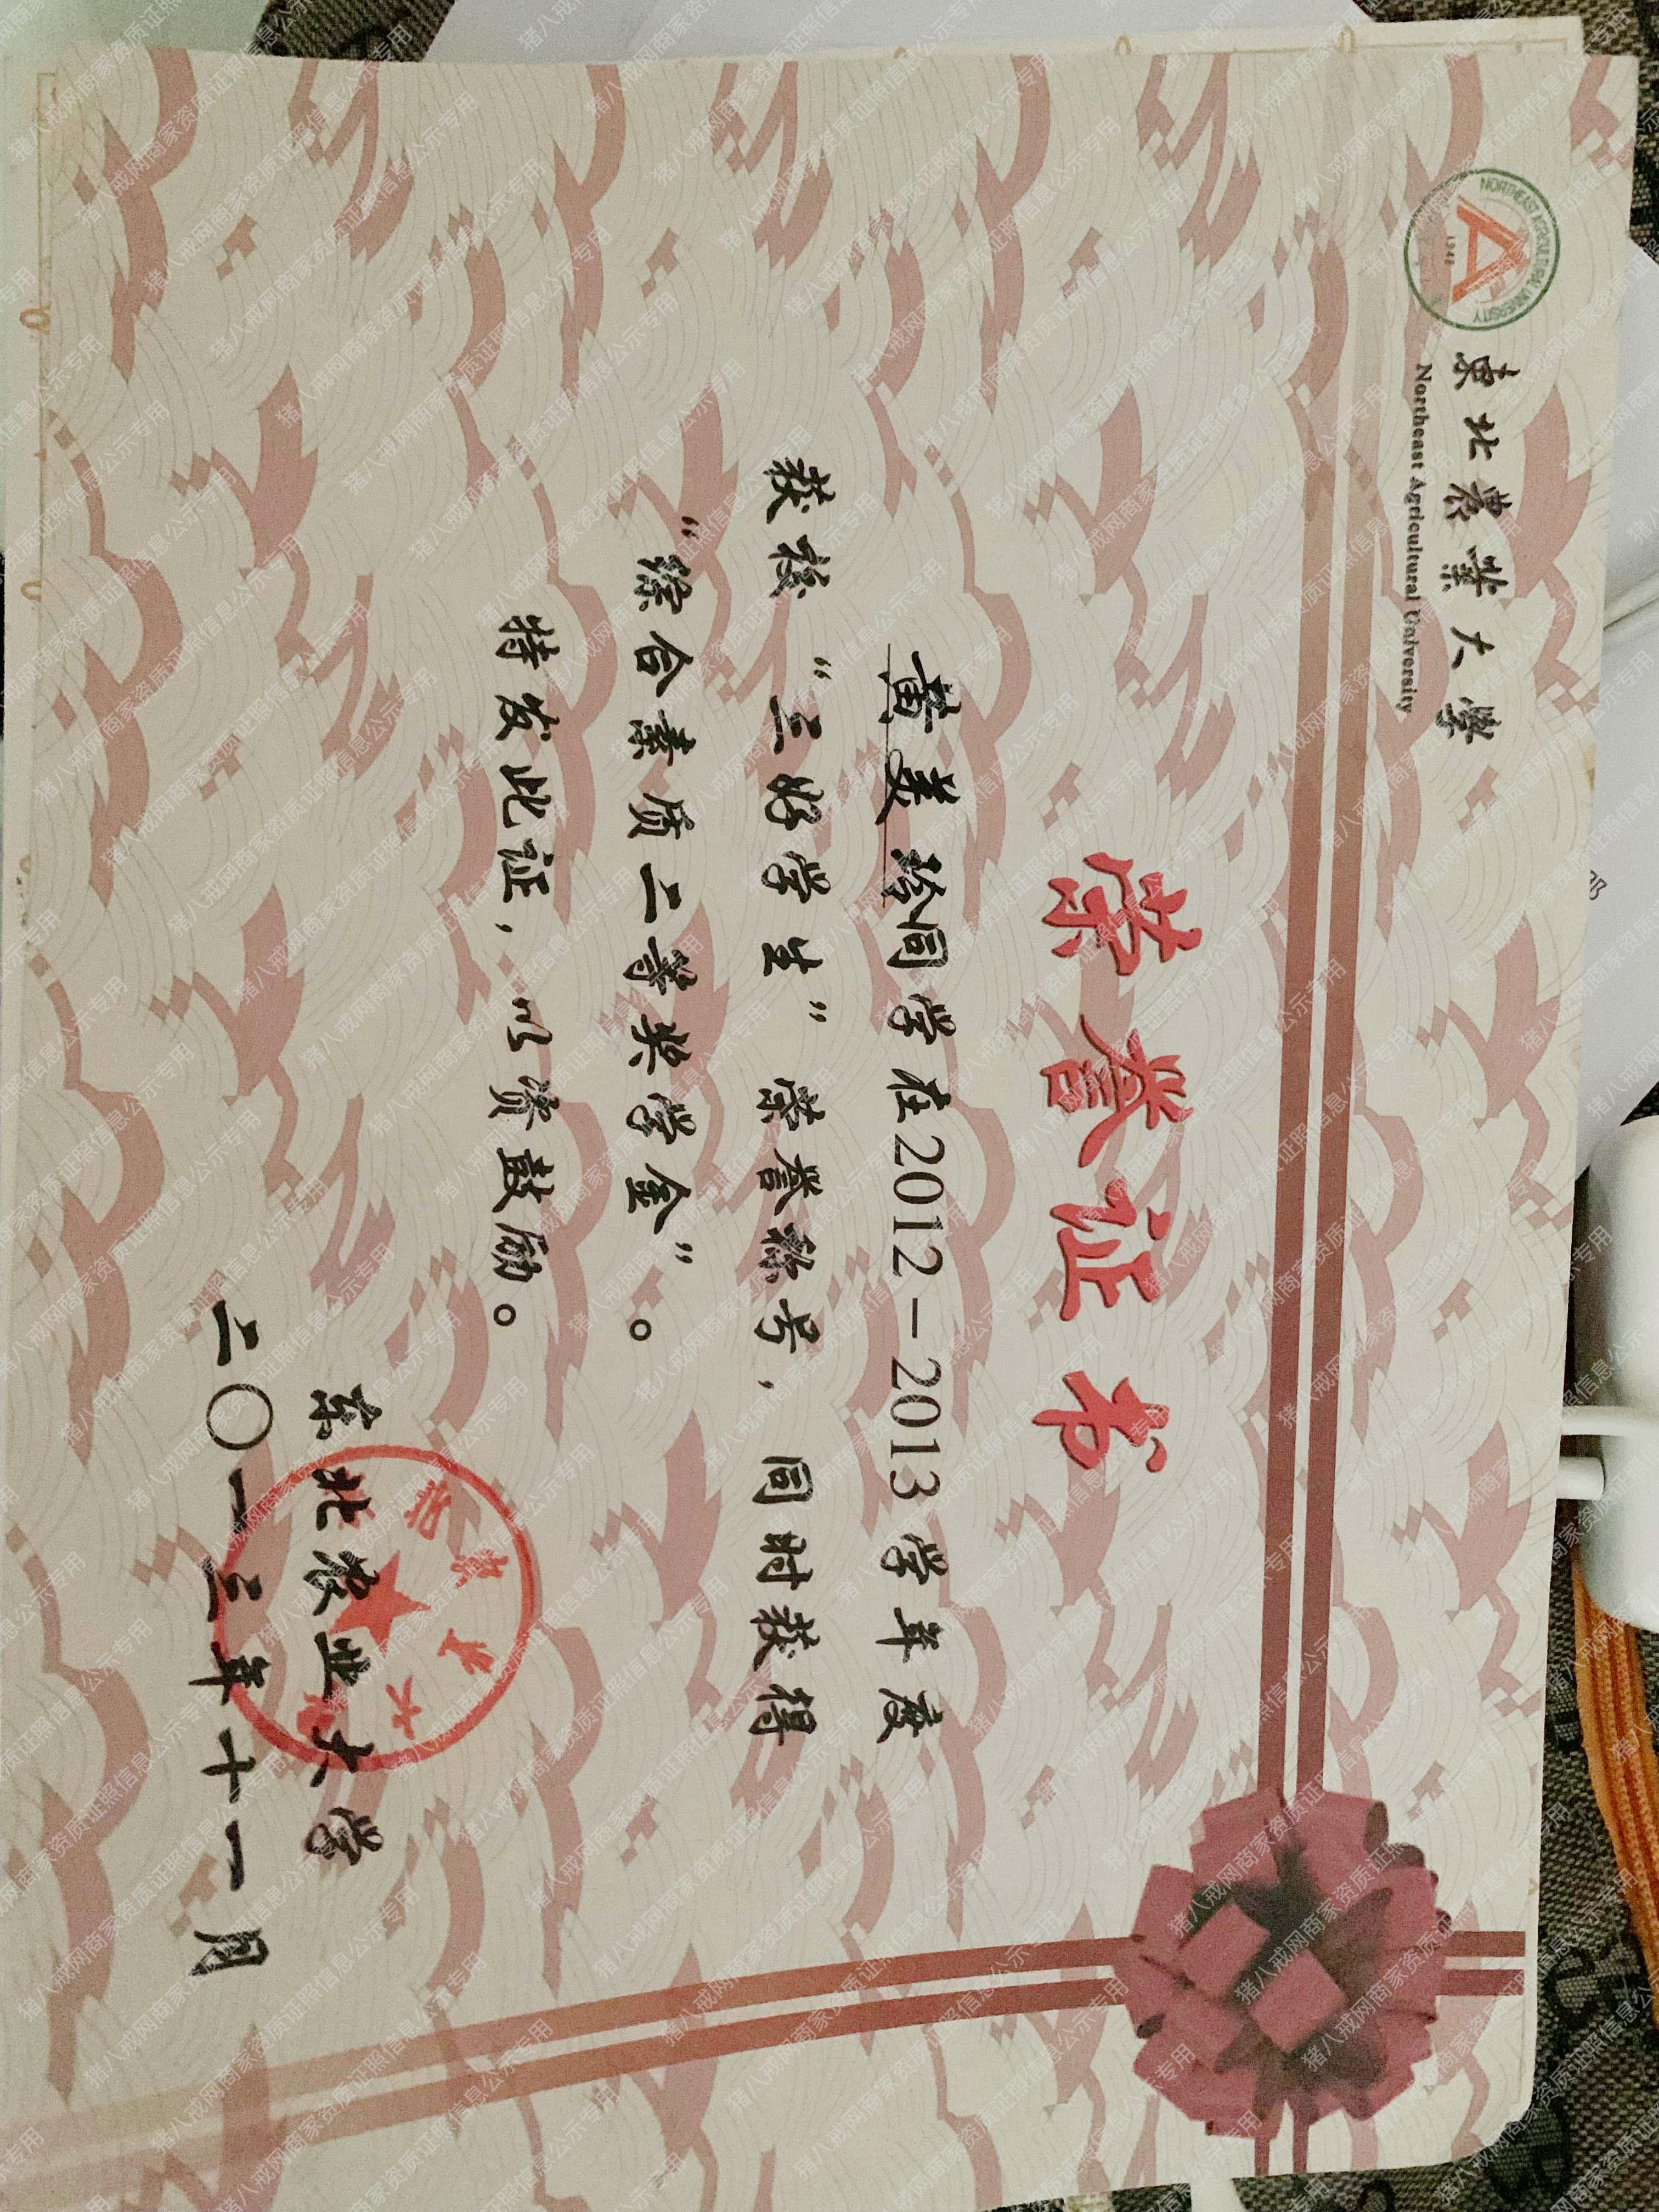 東北農業大學
Northeast Agricultural University
NORTHEAST AGRICULTURAL UNIVERSITY
1948
荣誉证书
黄美玲同学在2012－2013学年度
获校“三好学生”荣誉称号，同时获得
“综合素质二等奖学金”。
特发此证，以资鼓励。
东北农业大学
二〇一三年十一月
猪八戒网商家资质证照信息公示专用